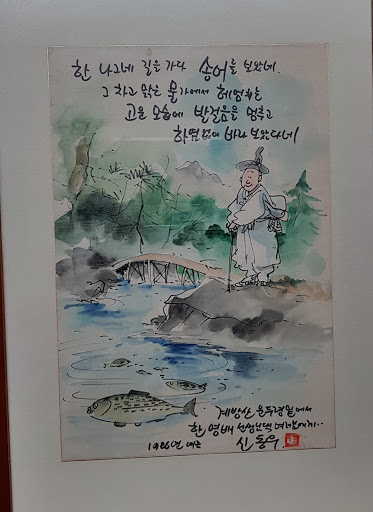 한 나그네 길을 가다 송어를 보았네.
그 차고 맑은 물가에서 헤엄치는
고운 모습에 발걸음을 멈추고
하염없이 바라 보았다네
계방산 운두령밑에서
한영배 선생님댁
1986년 여름 신동우